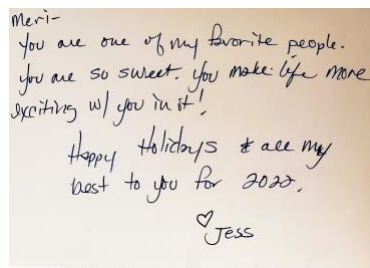 Meri-
You are one of my favorite people.
You are so sweet. You make life more
exciting w/ you in it!
Happy Holidays & all my
best to you for 2022.
♡ Jess